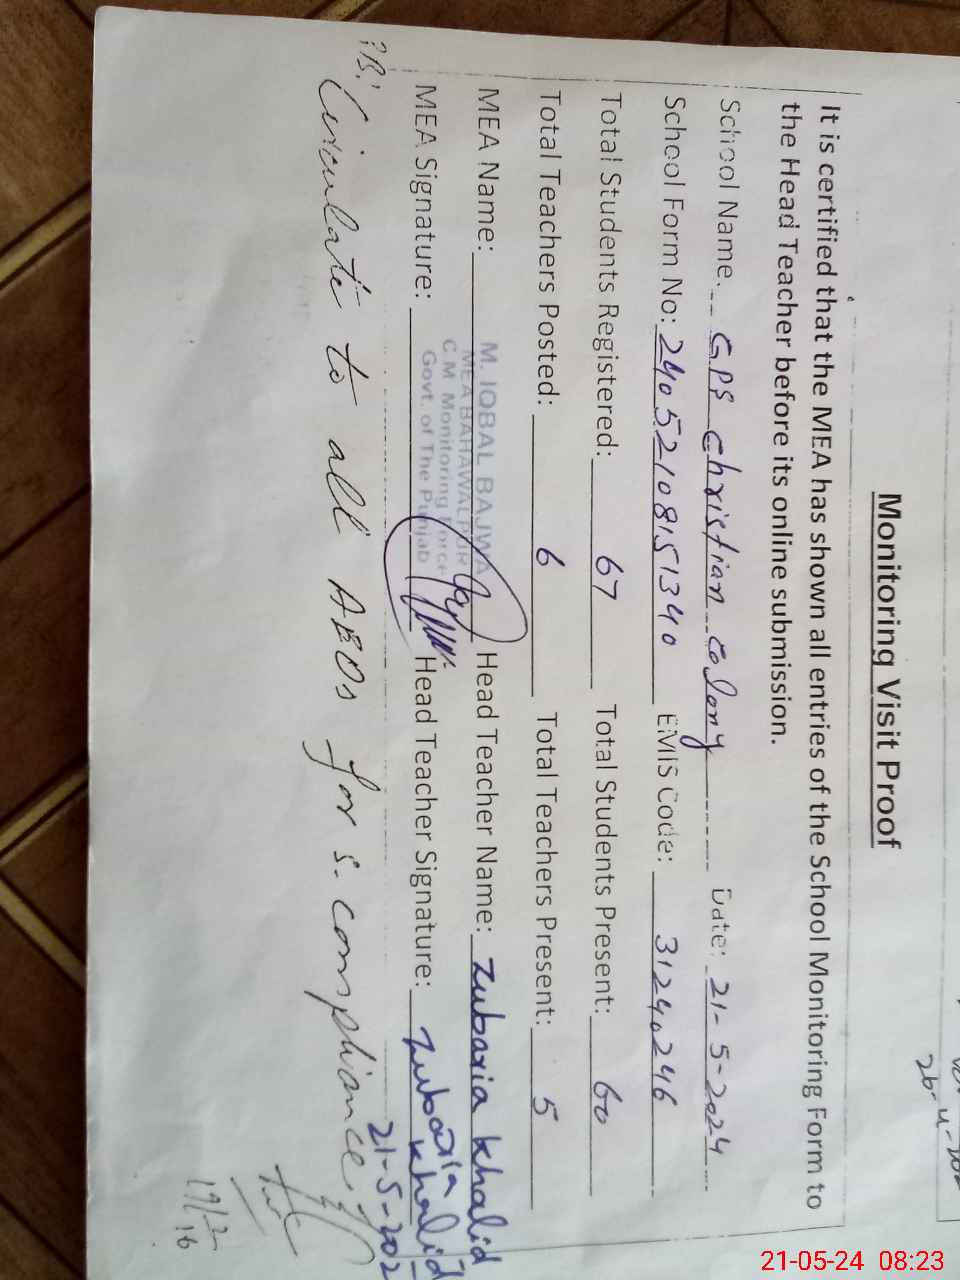 Monitoring Visit Proof
It is certified that the MEA has shown all entries of the School Monitoring Form to
the Head Teacher before its online submission.
School Name: GPS Christian colony Date: 21-5-2024
School Form No: 24052108151340 EMIS Code: 31240246
Total Students Registered: 67 Total Students Present: 60
Total Teachers Posted: 6 Total Teachers Present: 5
MEA Name: M. IQBAL BAJWA Head Teacher Name: Zubaria Khalid
MEA BAHAWALPUR
C.M. Monitoring Force
Govt. of The Punjab
MEA Signature: Head Teacher Signature: Zubaria Khalid
21-5-202
Circulate to all AEOs for s. compliance
21-05-24 08:23